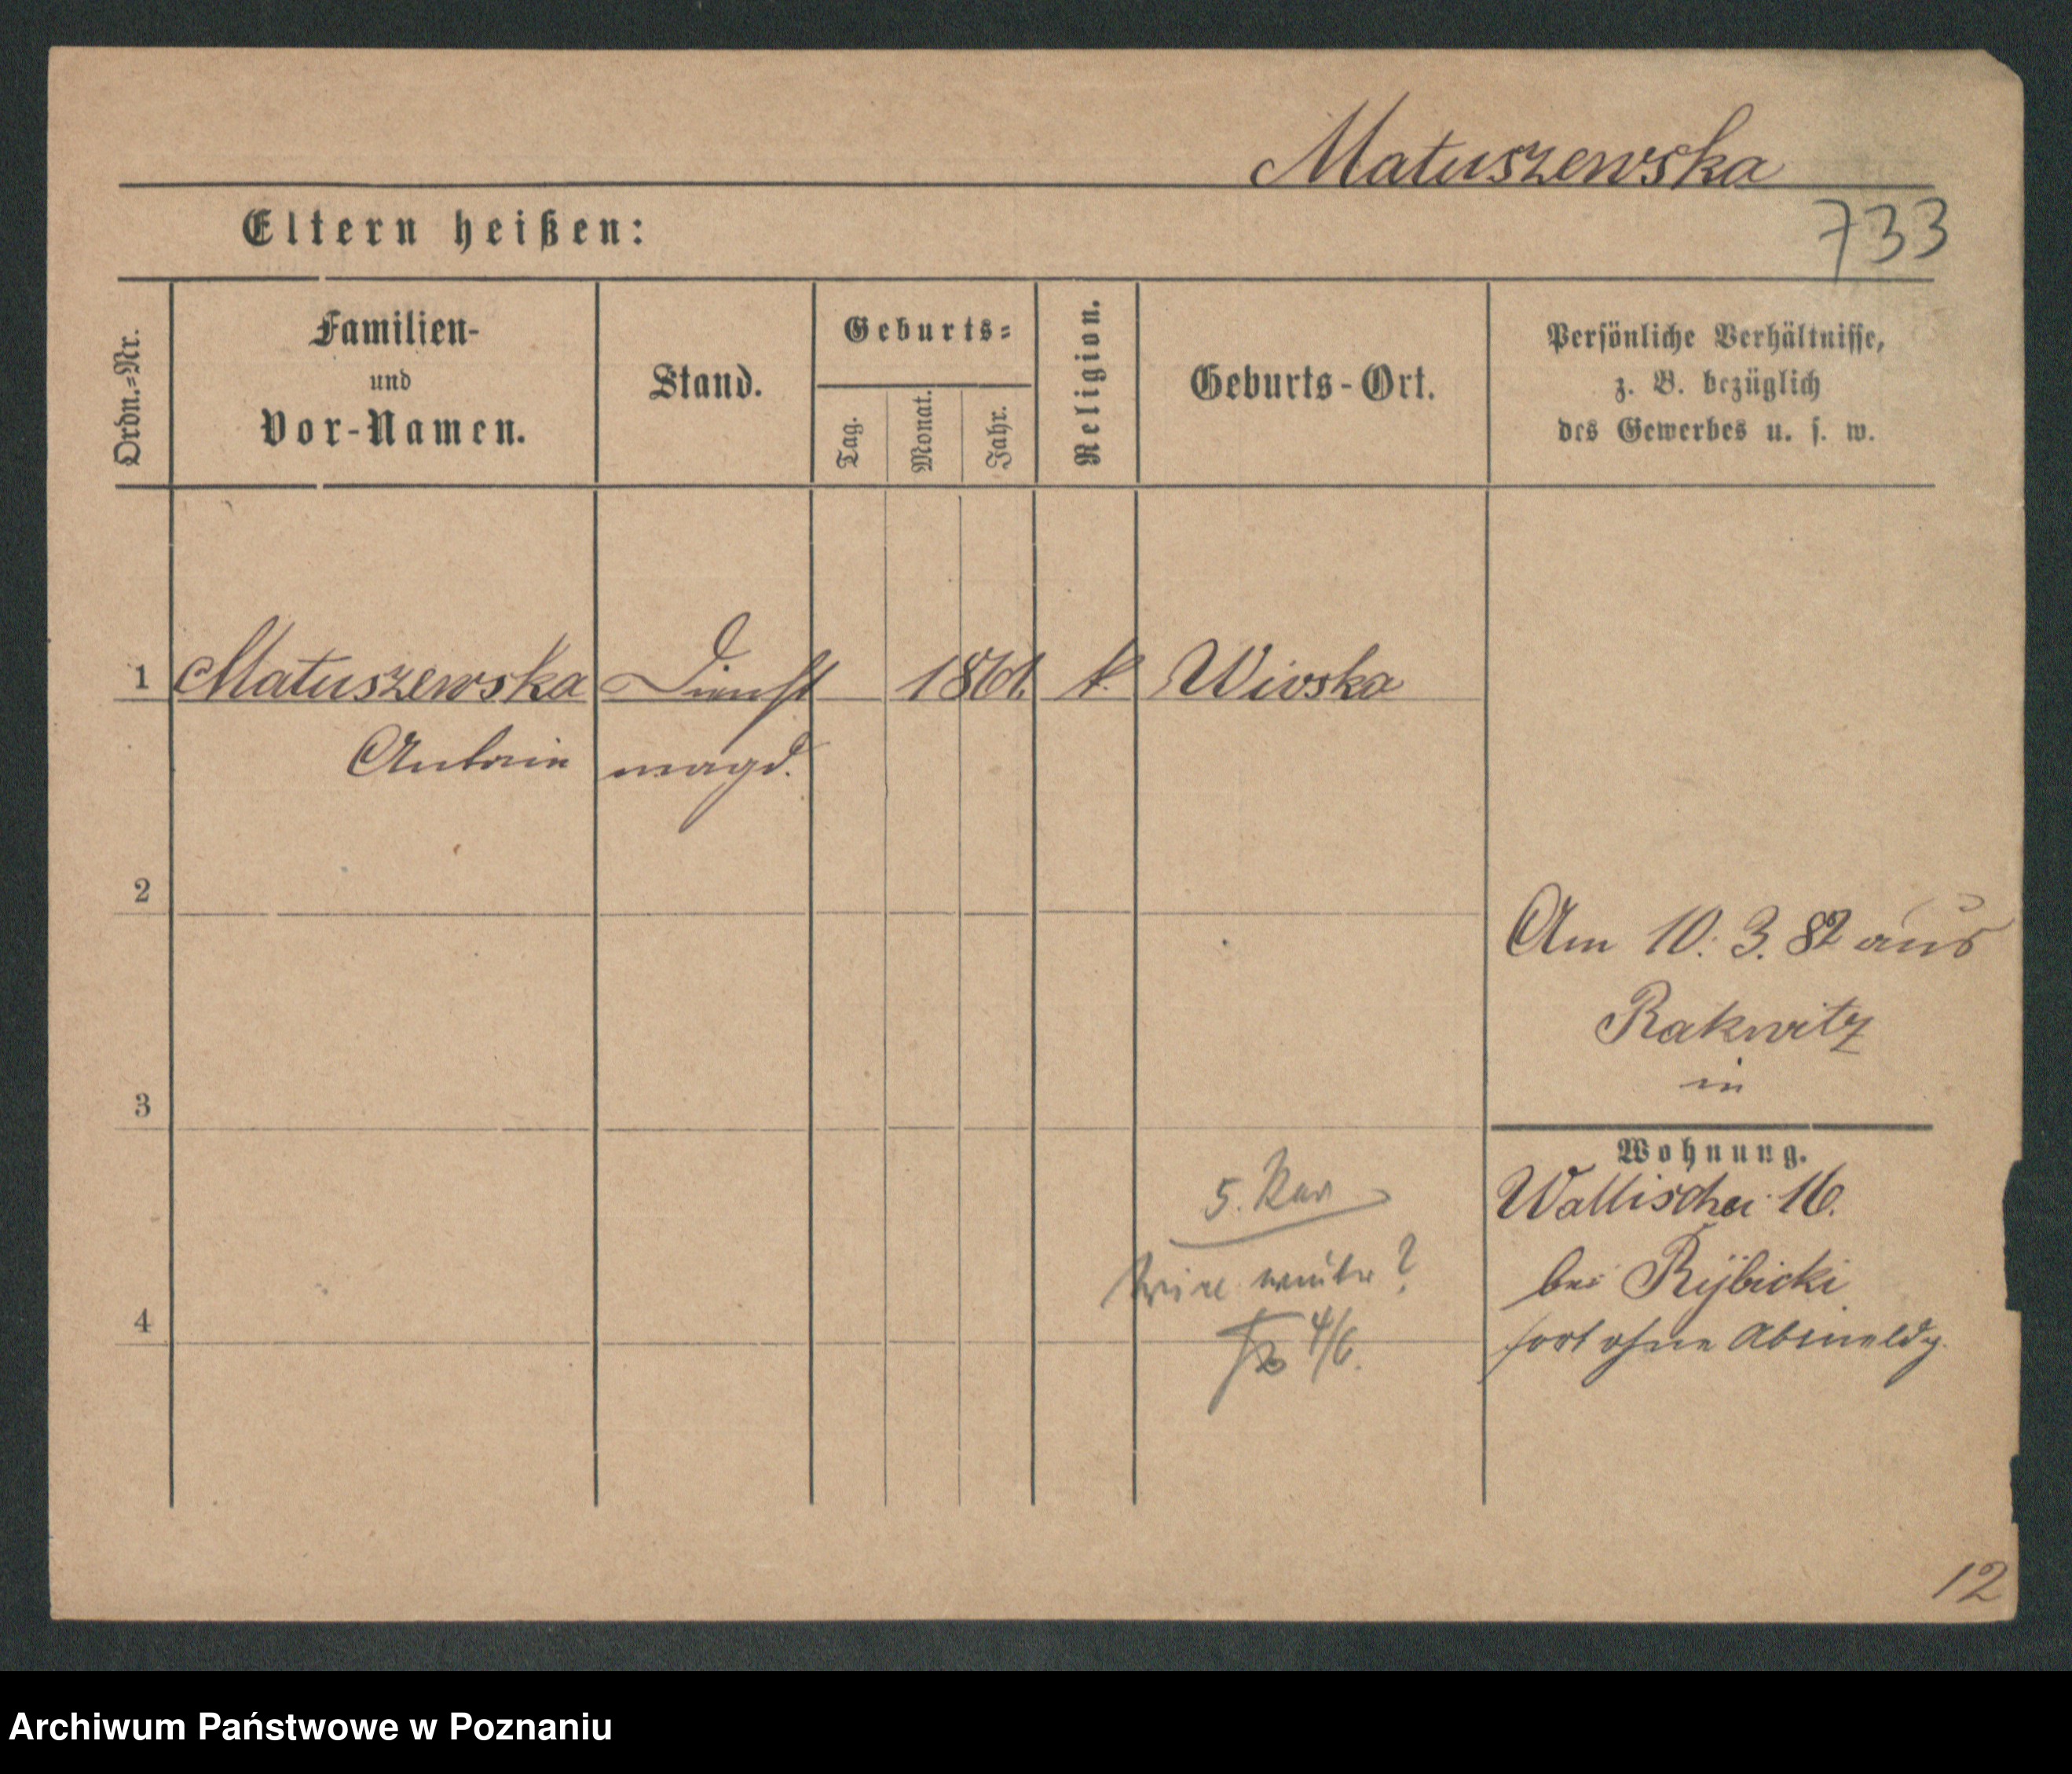 Matuszewska
733
Eltern heißen:
Ordn.=Nr.
Familien-
und
Vor-Namen.
Stand.
Geburts=
Tag.
Monat.
Jahr.
Religion.
Geburts-Ort.
Persönliche Verhältnisse,
z. B. bezüglich
des Gewerbes u. s. w.
1 Matuszewska Dienst 1861. k. Wioska
Antonie magd.
2
Am 10. 3. 82 aus
Rakwitz
in
3
Wohnung.
5. Rev
Wallischei 16.
bei Rÿbicki
4/6.
fort ohne Abmeldg.
4
12
Archiwum Państwowe w Poznaniu